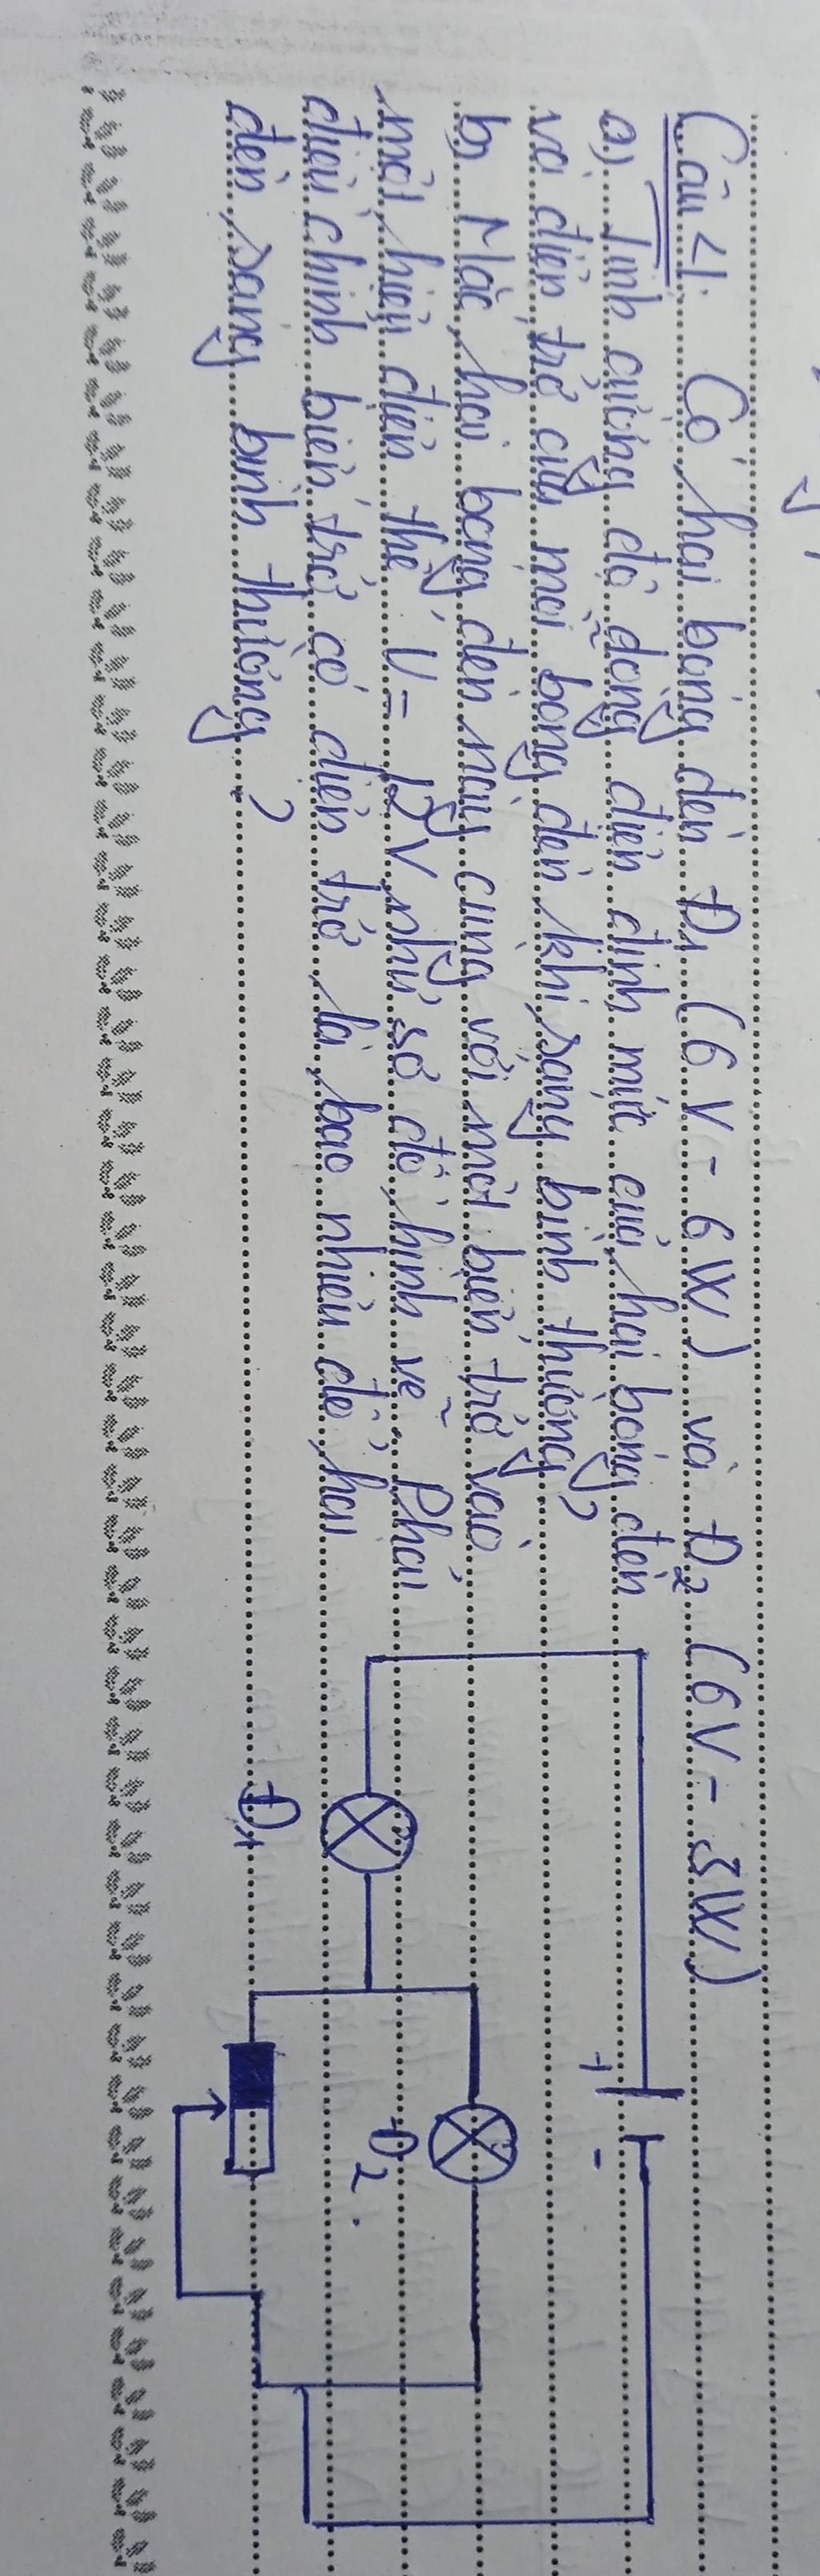 Câu 4. Có hai bóng đèn Đ1 (6V - 6W) và Đ2 (6V - 3W)
a) Tính cường độ dòng điện định mức của hai bóng đèn
và điện trở của mỗi bóng đèn khi sáng bình thường?
b) Mắc hai bóng đèn này cùng với một biến trở vào
một hiệu điện thế U = 12V như sơ đồ hình vẽ. Phải
điều chỉnh biến trở có điện trở là bao nhiêu để hai
đèn sáng bình thường?
+ -
Đ2.
Đ1